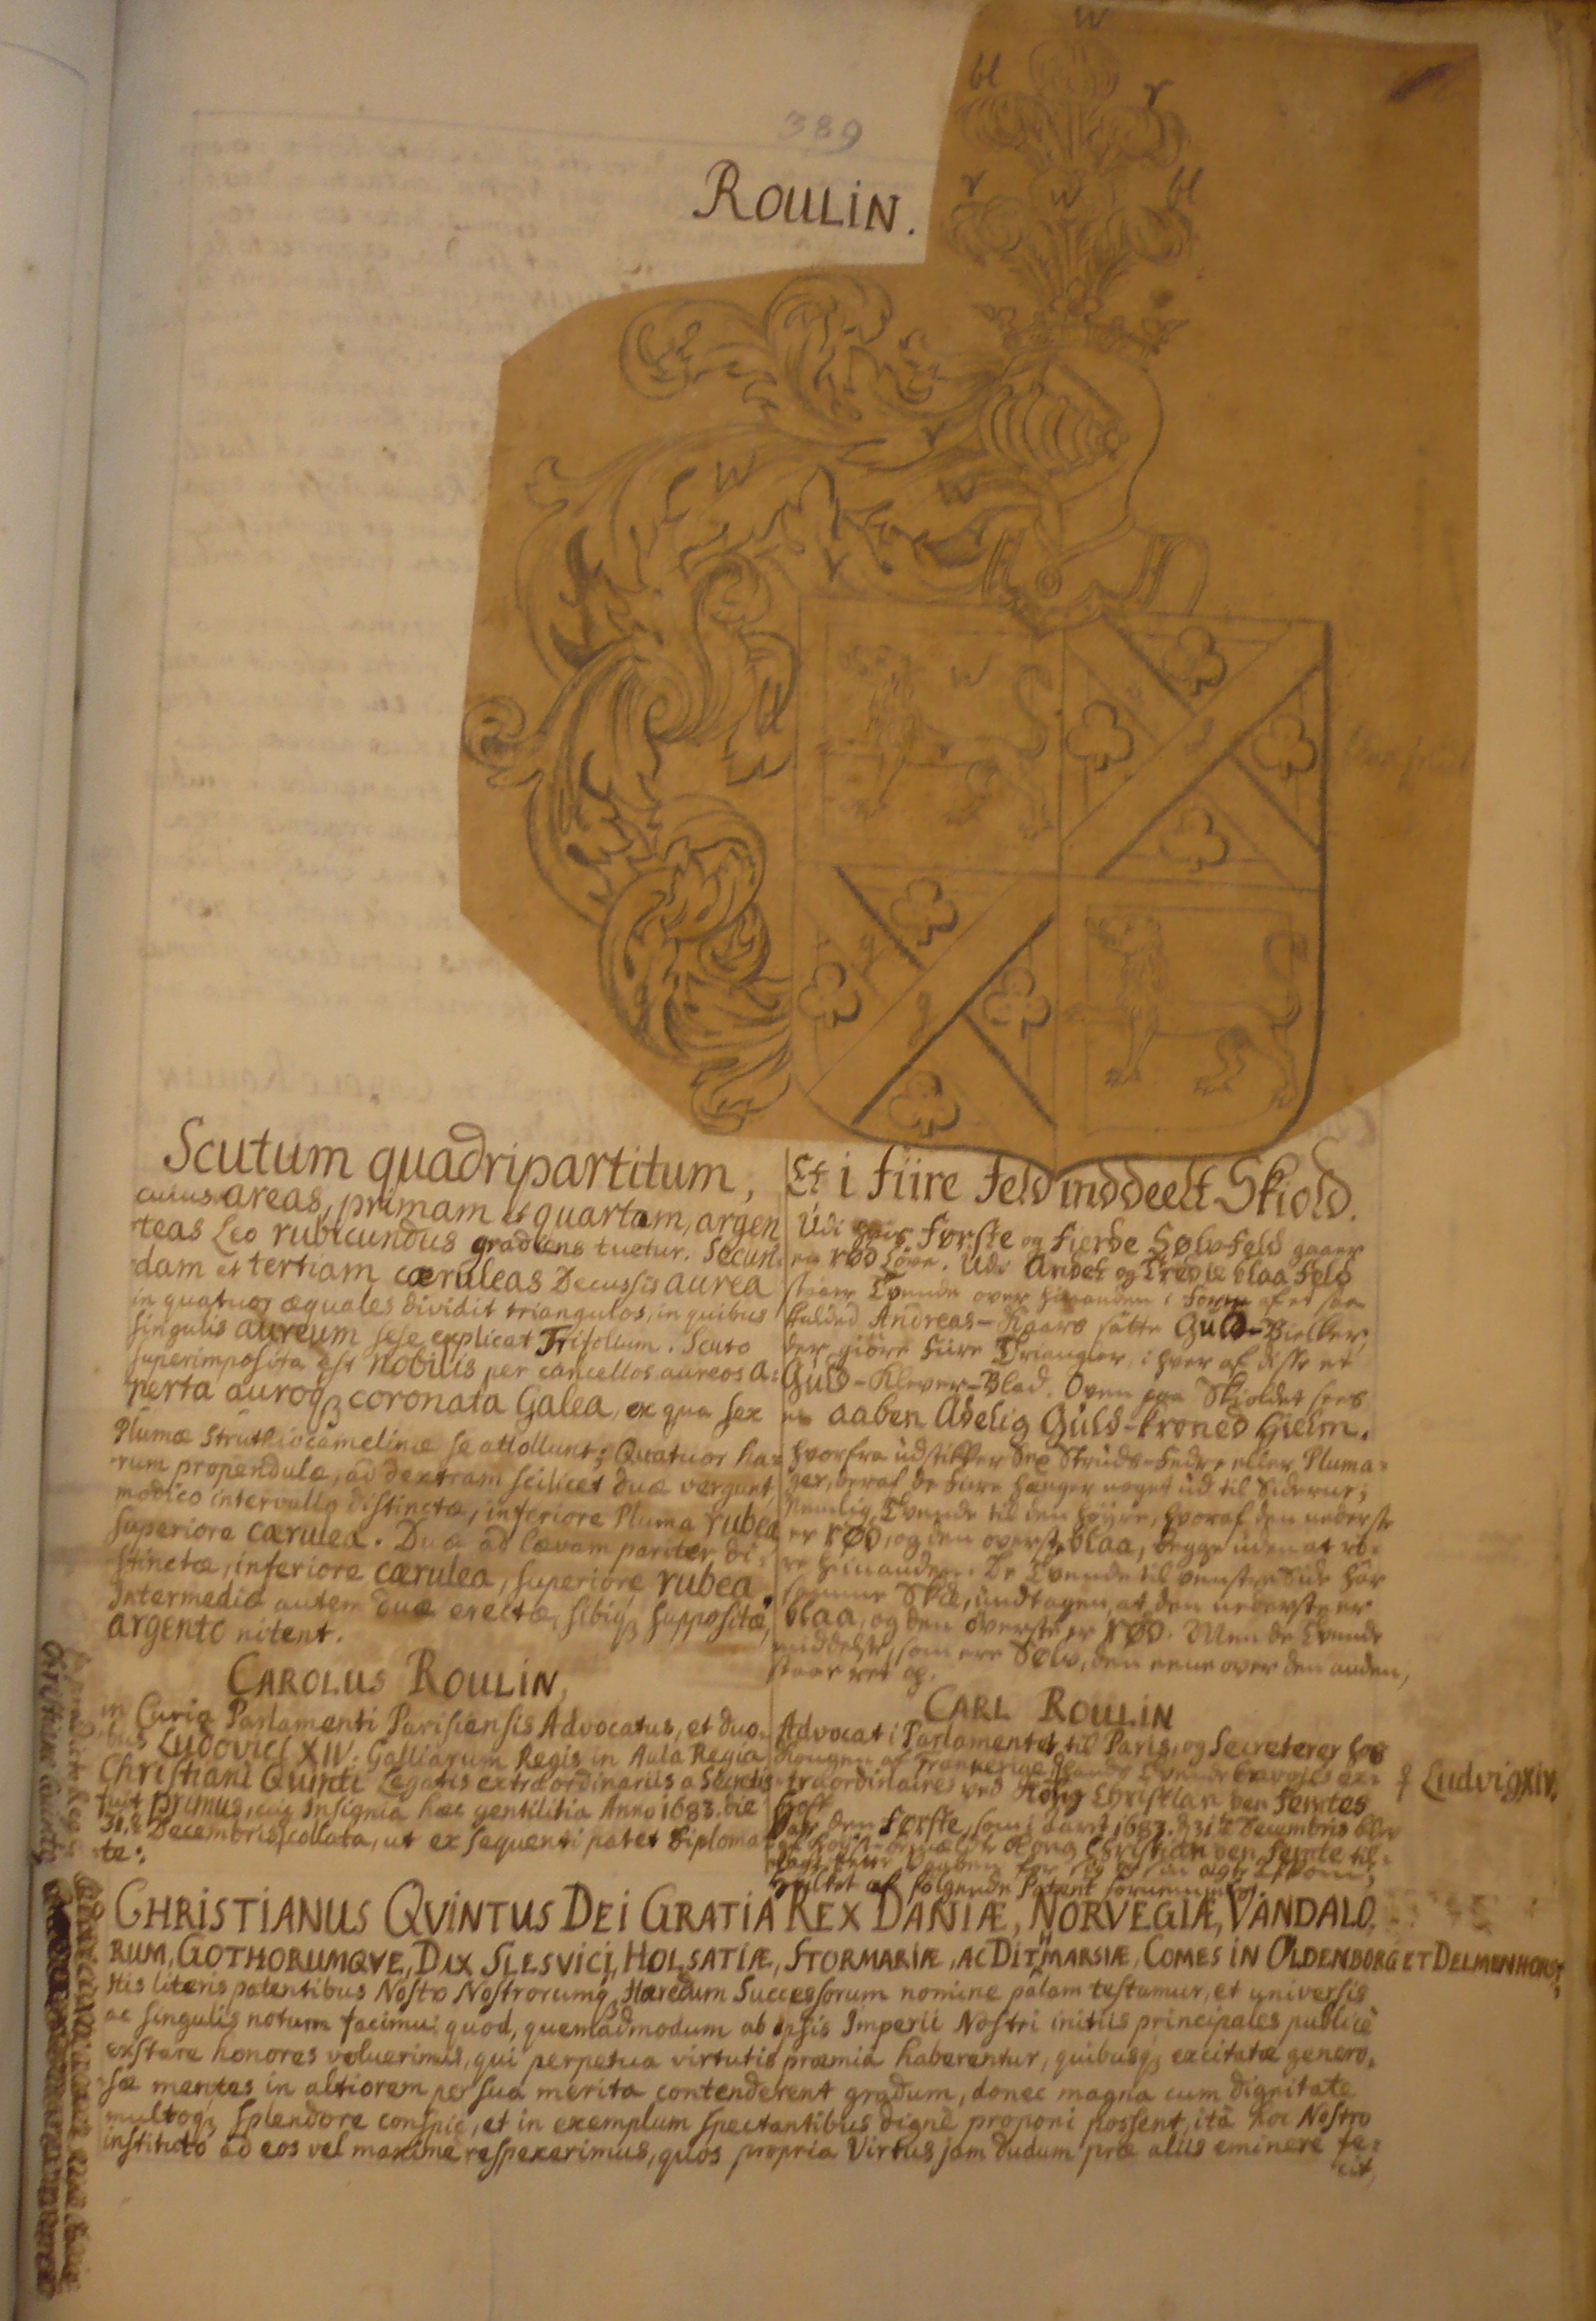 389
ROULIN.
w
bl
r
r
w
bl
r
w
w
r
w
g
g
g
Scutum quadripartitum,
cuius areas, primam et quartam, argen
teas Leo rubicundus gradiens tuetur. Secun-
dam et tertiam cæruleas Decussis aurea
in quatuor æquales dividit triangulos, in quibus
singulis aureum sese explicat Trifolium. Scuto
superimposita est nobilis per cancellos aureos a=
perta auroq; coronata Galea, ex qua sex
Plumæ Struthiocamelinæ se attollunt; Quatuor ha=
rum propendulæ, ad dextram scilicet duæ vergunt,
modico intervallo distinctæ, inferiore Pluma rubea
superiore cærulea. Duæ ad lævam pariter di=
stinctæ, inferiore cærulea, superiore rubea.
Intermediæ autem duæ erectæ, sibiq; suppositæ,
argento nitent.
CAROLUS ROULIN,
in Curia Parlamenti Parisiensis Advocatus, et duo-
bus Ludovici XIV. Galliarum Regis in Aula Regia
Christiani Quinti Legatis extraordinariis a Secretis
fuit primus, cui Insignia hæc gentilitia Anno 1683. die
31. Decembris collata, ut ex sequenti patet Diploma-
te:
Et i fiire Feld inddeelt Skiold.
Udi hvis Første og Fierde Sølv-Feld gaaer
en rød Löve. Udi Andet og Tredie blaa Feld
staaer Tvende over hinanden i Form af et saa
kalded Andreas-Kaars satte Guld-Bielker,
der giöre Fiire Triangler, i hver af disse et
Guld-Klever-Blad. Oven paa Skioldet sees
en aaben Adelig Guld-kroned Hielm.
hvorfra udstikker Sex Struds-Fedre eller Pluma=
ger, deraf de Fiire hænger noget ud til Siderne;
Nemlig, Tvende til den høyre, hvoraf den nederste
er rød, og den överste blaa, begge uden at rö-
re hinanden. De Tvende til venstre Side har
samme Skik, undtagen, at den nederste er
blaa, og den överste er rød. Men de Tvende
middelste, som ere Sølv, den eene over den anden,
staar ret op.
CARL ROULIN
Advocat i Parlamentet til Paris, og Secreterer hos
Kongen af Frankeriges Tvende Envoyés ex-
traordinaires ved Kong Christian den Femtes
Hoff
Var den Første, som i Aaret 1683. d. 31 Decembris blev
af Kong Christian den Femte til-
hvilket af følgende Patent fornemmes.
Ludvig XIV.
CHRISTIANUS QVINTUS DEI GRATIA REX DANIÆ, NORVEGIÆ, VANDALO
RUM, GOTHORUMQVE, DUX SLESVICI, HOLSATIÆ, STORMARIÆ, AC DITMARSIÆ, COMES IN OLDENBORG ET DELMENHORST,
His literis patentibus Nostro Nostrorumq; Hæredum Successorum nomine palam testamur, et universis
ac singulis notum facimus quod, quemadmodum ab ipsis Imperii Nostri initiis principales publicè
exstare honores voluerimus, qui perpetua virtutis præmia haberentur, quibusq; excitatæ genero-
sæ mentes in altiorem per sua merita contenderent gradum, donec magna cum dignitate
multoq; splendore conspici, et in exemplum spectantibus dignè proponi possent, ità hoc Nostro
instituto ad eos vel maxime respexerimus, quos propria Virtus jam dudum præ aliis eminere fe=
cit,